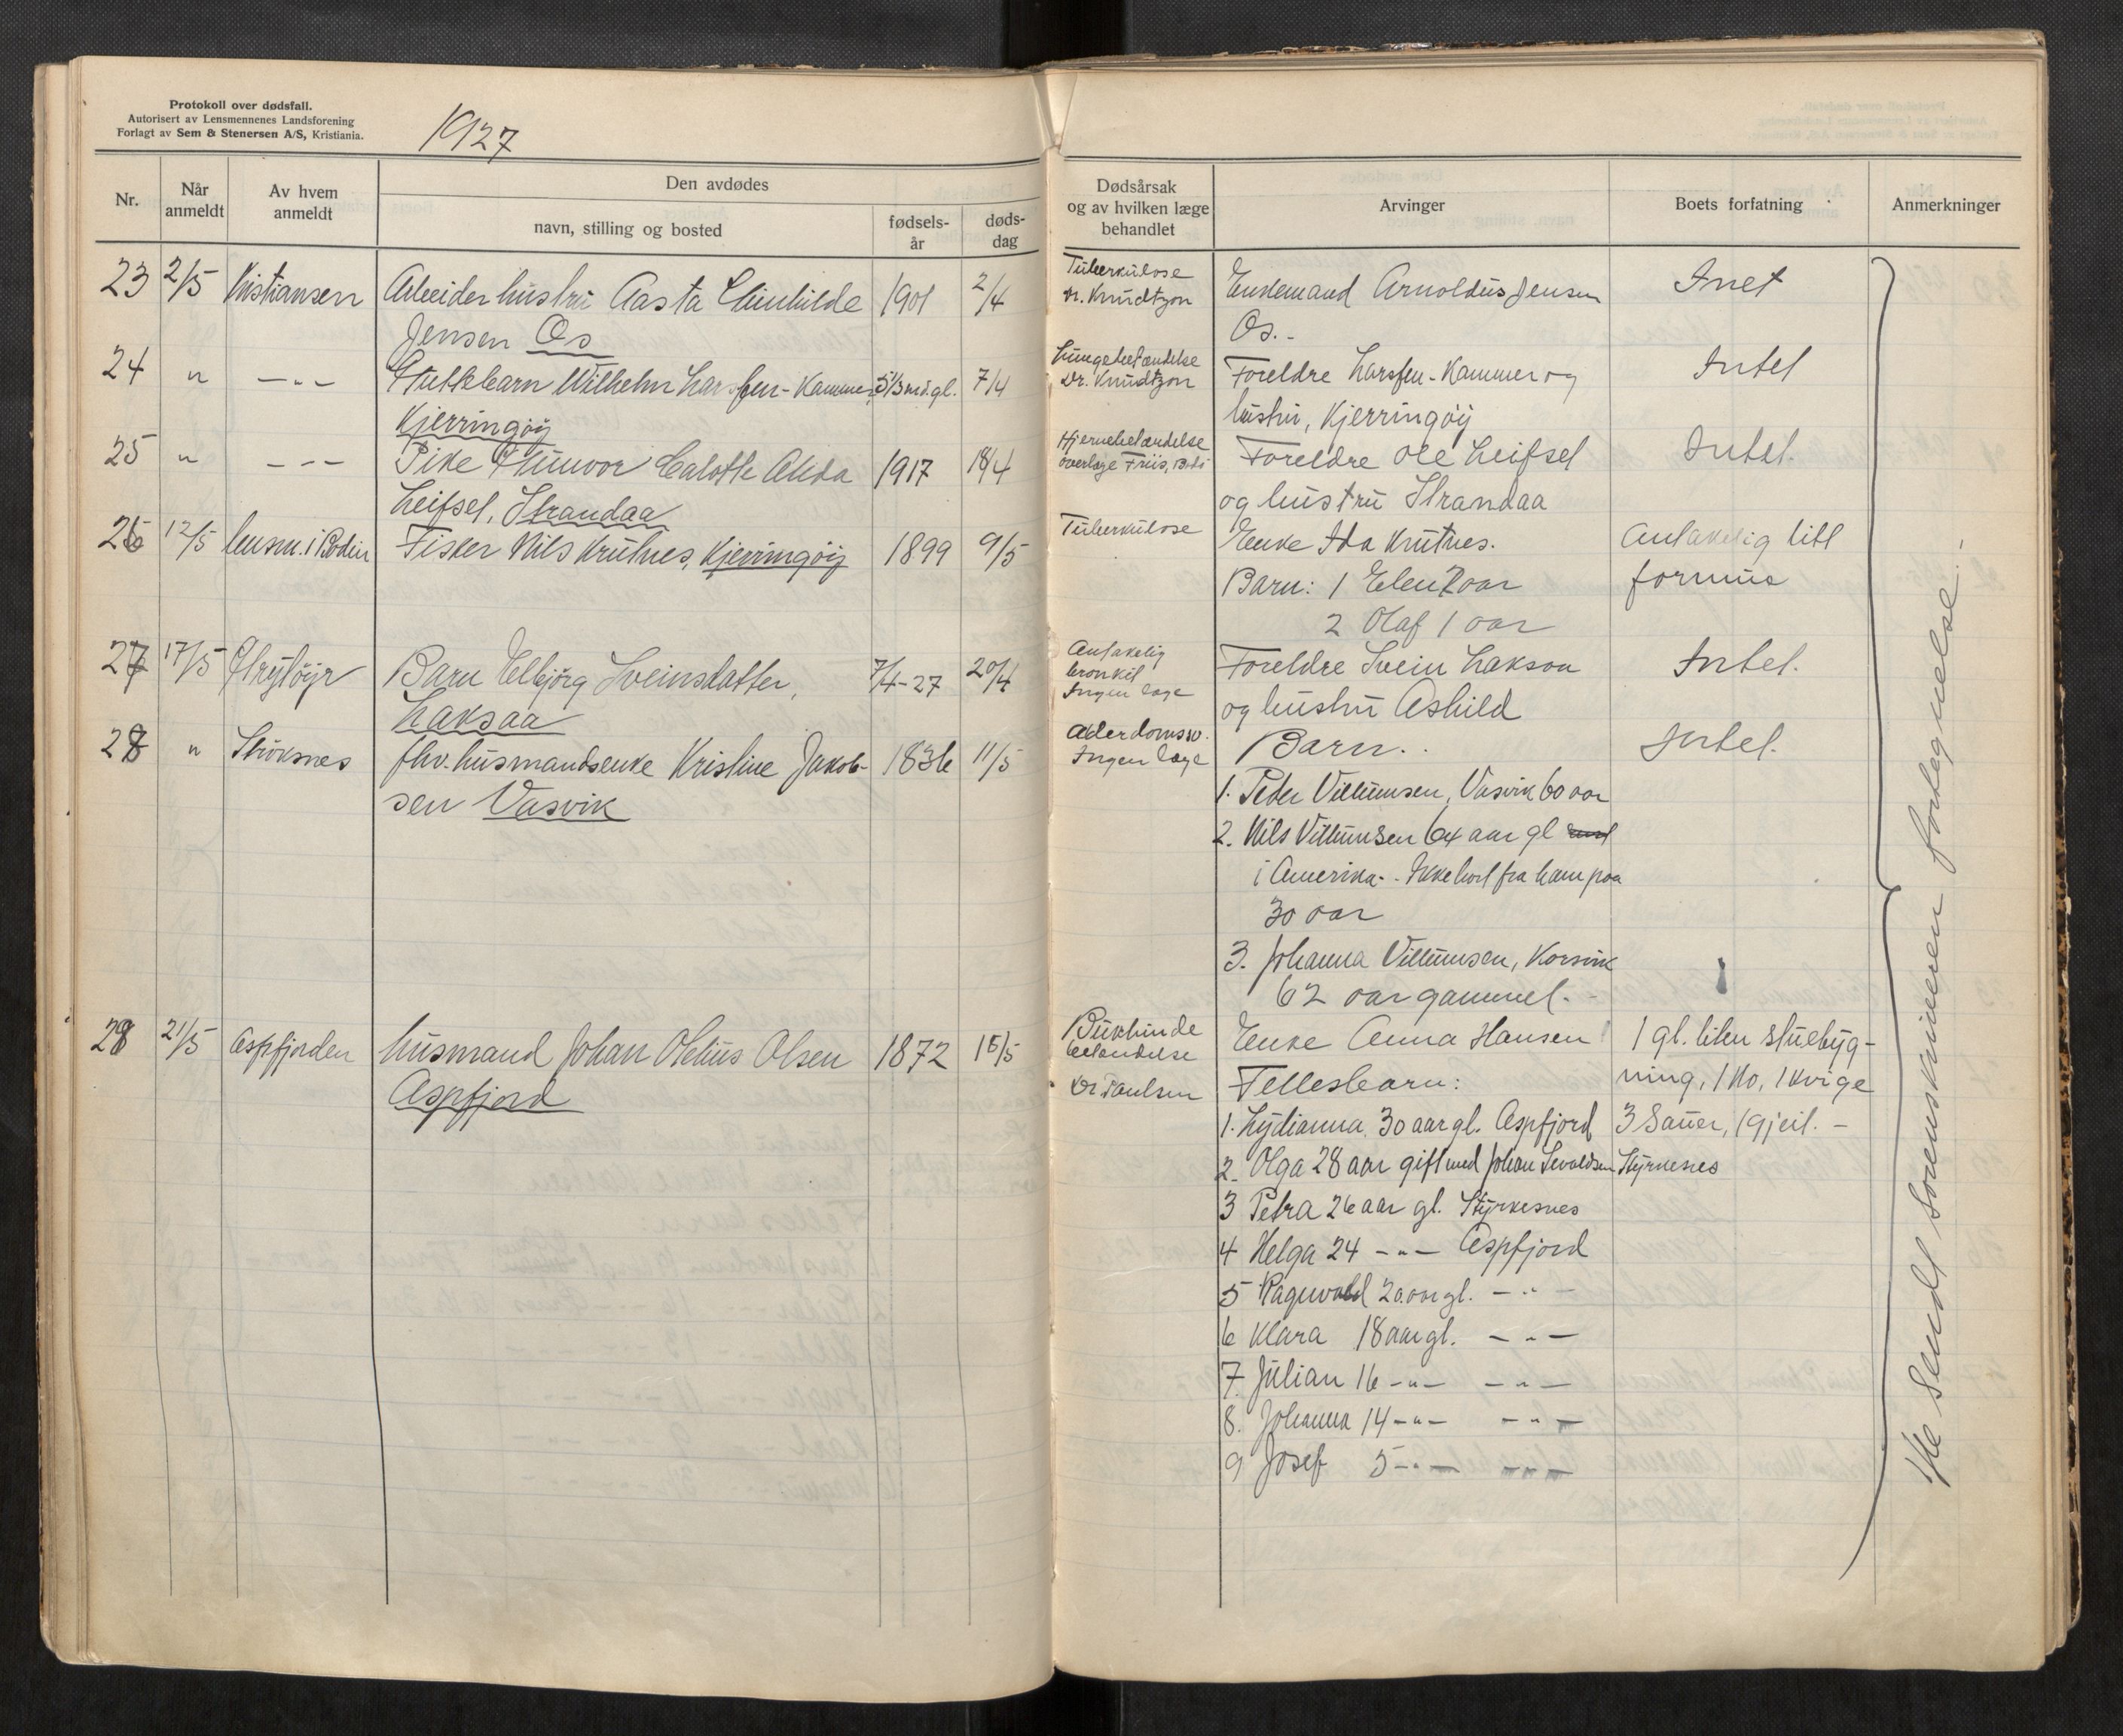 Protokoll over dødsfall.
Autorisert av Lensmennenes Landsforening
Forlagt av Sem & Stenersen A/S, Kristiania.
1927
Nr.
Når anmeldt
Av hvem anmeldt
Den avdødes
navn, stilling og bosted
fødsels-år
døds-dag
Dødsårsak og av hvilken læge behandlet
Arvinger
Boets forfatning
Anmerkninger
23 2/5 Kristiansen Arbeiderhustru Aasta 1901 2/4 Tuberkulose Enkemand Arnoldus Jensen Intet
Jensen Os Dr. Knudtzon Os.-
24 " -"- Wilhelm Larssen-Kammer 5 1/3 md.gl. 7/4 Lungebetændelse Foreldre Larssen-Kammer og Intet
Kjerringøy Dr. Knudtzon hustru, Kjerringøy
25 " -"- Pike Gunvor Calotte Alida 1917 18/4 Hjernebetændelse Foreldre Ole Leifsel Intet.
Leifsel, Strandaa overlæge Friis, Bodø og hustru Strandaa
26 12/5 lensm. i Bodin Fisker Nils Krutnes, Kjerringøy 1899 9/5 Tuberkulose Enke Ida Krutnes. Antakelig litt
Barn: 1 Elen 2 aar formue
2 Olaf 1 aar
27 17/5 Barn Elbjørg Sveinsdatter, 7/4-27 20/4 Antakelig Foreldre Svein Lakson Intet.
Laksaa bronkit Ingen læge og hustru Ashild
28 " Strøksnes fhv. husmandsenke Kristine Jakob- 1836 11/5 Alderdomssv. Barn. Intet.
sen Vasvik Ingen læge
1. Peder Villumsen, Vasvik 60 aar
2. Nils Villumsen 64 aar gl
i Amerika.- Ikke hørt fra ham paa
30 aar
3. Johanna Villumsen, Korsvik
62 aar gammel.-
28 21/5 Aspfjorden husmand Johan Olelius Olsen 1872 15/5 Bukhinde Enke Anna Hansen 1 gl. liten stuebyg-
Aspfjord betændelse Fellesbarn: ning, 1 ko, 1 kvige
Dr. Paulsen
1. Lydianna 30 aar gl. Aspfjord 3 Sauer, 1 gjeit.-
2. Olga 28 aar gift med Johan Sevaldsen Styrkesnes
3 Petra 26 aar gl. Styrkesnes
4 Helga 24 -"- Aspfjord
5 Ragnvald 20 aar gl. -"-
6 Klara 18 aar gl. -"-
7. Julian 16 -"- -"-
8. Johanna 14 -"- -"-
9 Josef 5 -"- -"-
1/6 Sendt Sorenskriveren fortegnelse.-